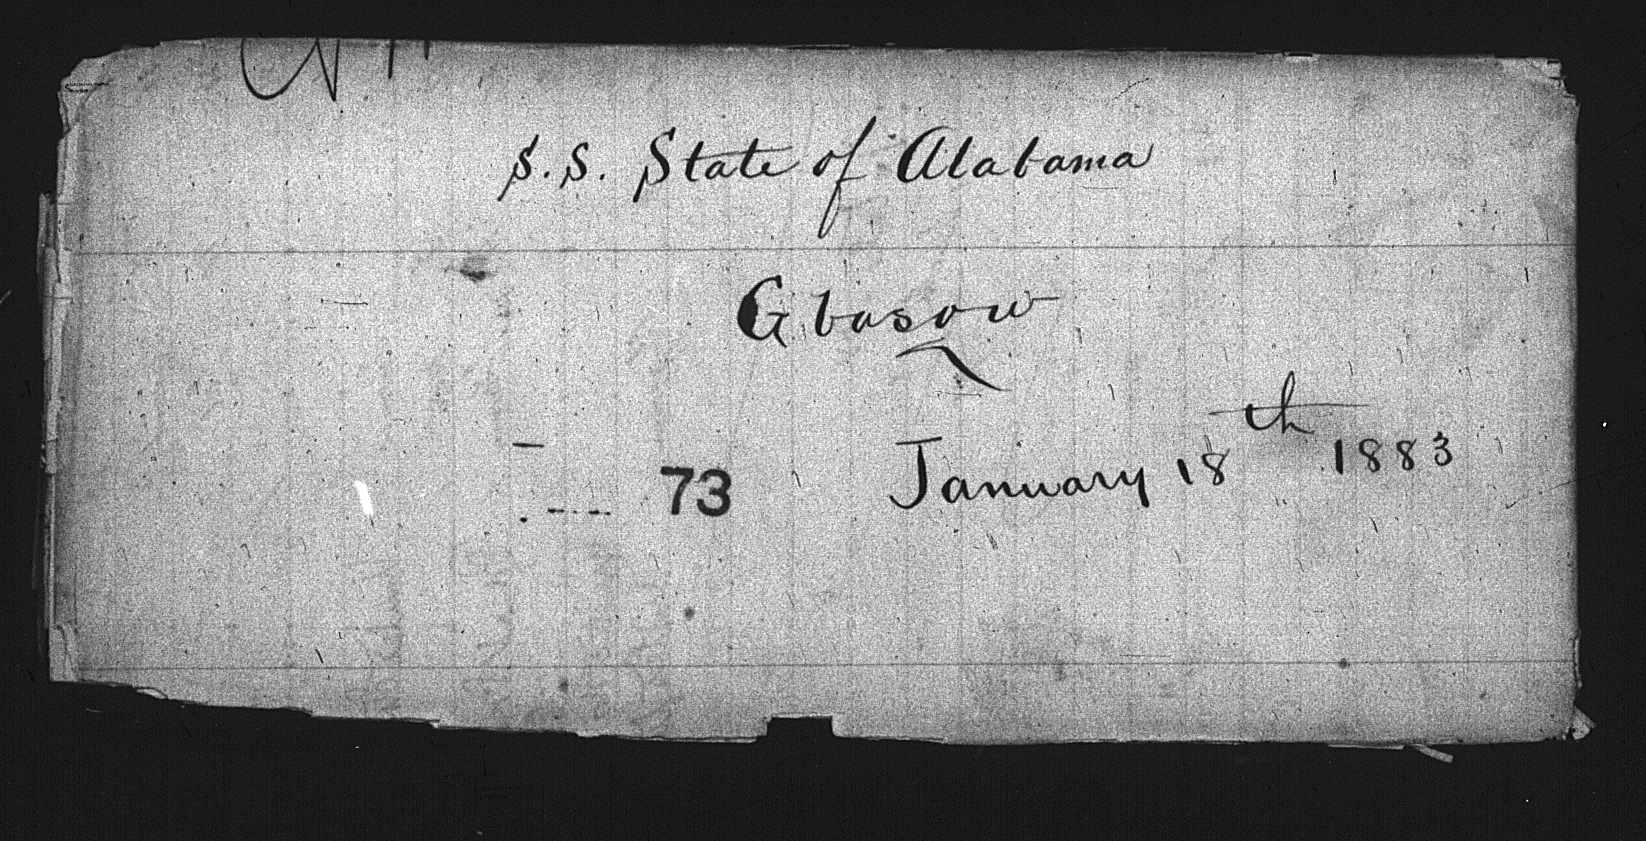 S.S. State of Alabama
Glasgow
January 18th 1883
73